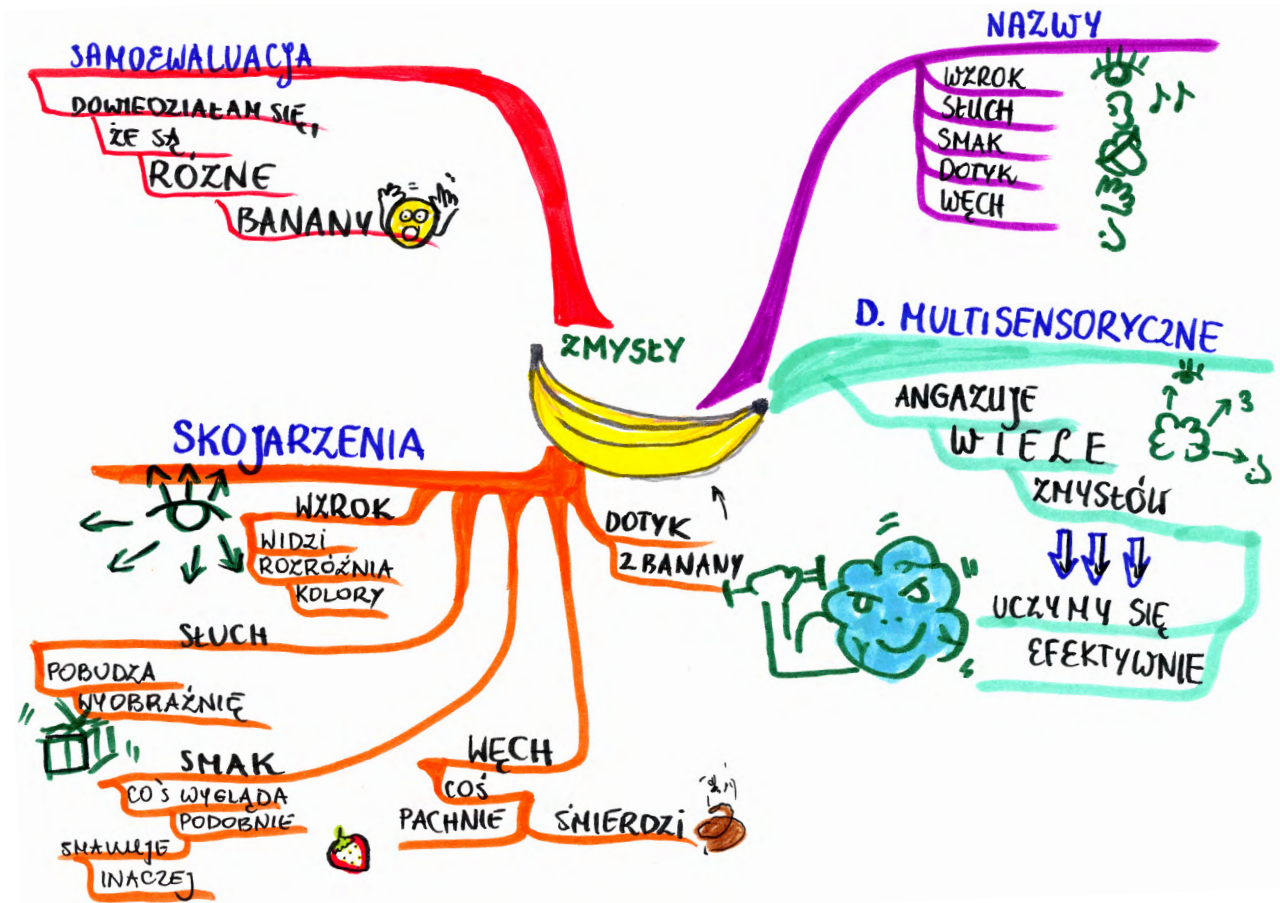 SAMOEWALUACJA
DOWIEDZIAŁAM SIĘ,
ŻE SĄ
RÓŻNE
BANANY
NAZWY
WZROK
SŁUCH
SMAK
DOTYK
WĘCH
ZMYSŁY
D. MULTISENSORYCZNE
ANGAŻUJE
WIELE
ZMYSŁÓW
UCZYMY SIĘ
EFEKTYWNIE
SKOJARZENIA
WZROK
WIDZI
ROZRÓŻNIA
KOLORY
SŁUCH
POBUDZA
WYOBRAŹNIĘ
SMAK
COŚ WYGLĄDA
PODOBNIE
SMAKUJE
INACZEJ
WĘCH
COŚ
PACHNIE
ŚMIERDZI
DOTYK
2 BANANY